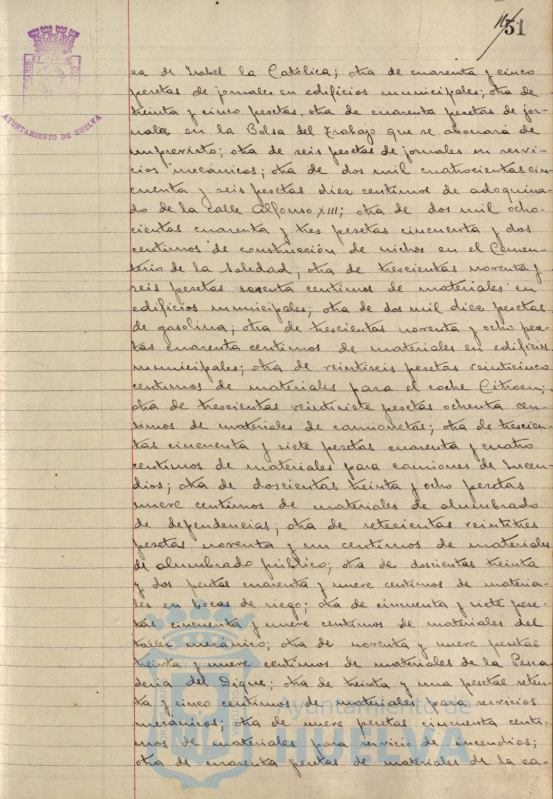 51
AYUNTAMIENTO DE HUELVA
za de Isabel la Católica; otra de cuarenta y cinco
pesetas de jornales en edificios municipales; otra de
treinta y cinco pesetas, otra de cuarenta pesetas de jor-
nales en la Bolsa del Trabajo que se abonará de
imprevisto; otra de seis pesetas de jornales en servi-
cios mecánicos; otra de dos mil cuatrocientas cin-
cuenta y seis pesetas diez centimos de adoquina-
do de la calle Alfonso XIII; otra de dos mil ocho-
cientas cuarenta y tres pesetas cincuenta y dos
centimos de construcción de nichos en el Cemen-
terio de la Soledad; otra de trescientas noventa y
seis pesetas centimos de materiales en
edificios municipales; otra de dos mil diez pesetas
de gasolina; otra de trescientas noventa y ocho pese-
tas cuarenta centimos de materiales en edificios
municipales; otra de veintiseis pesetas veinticinco
centimos de materiales para el coche Citroen;
otra de trescientas veintisiete pesetas ochenta cen-
timos de materiales de camionetas; otra de trescien-
tas cincuenta y siete pesetas cuarenta y cuatro
centimos de materiales para camiones de Incen-
dios; otra de doscientas treinta y ocho pesetas
nueve centimos de materiales de alumbrado
de dependencias; otra de setecientas veintitres
pesetas noventa y un centimos de materiales
de alumbrado público; otra de doscientas treinta
y dos pesetas cuarenta y nueve centimos de materia-
les en bocas de riego; otra de cincuenta y siete pese-
tas cincuenta y nueve centimos de materiales del
taller mecánico; otra de noventa y nueve pesetas
treinta y nueve centimos de materiales de la Pesca-
deria del Dique; otra de treinta y una pesetas seten-
ta y cinco centimos de materiales para servicios
mecánicos; otra de nueve pesetas cincuenta centi-
mos de materiales para servicio de incendios;
otra de cuarenta pesetas de materiales de la ca-
Ayuntamiento de
HUELVA